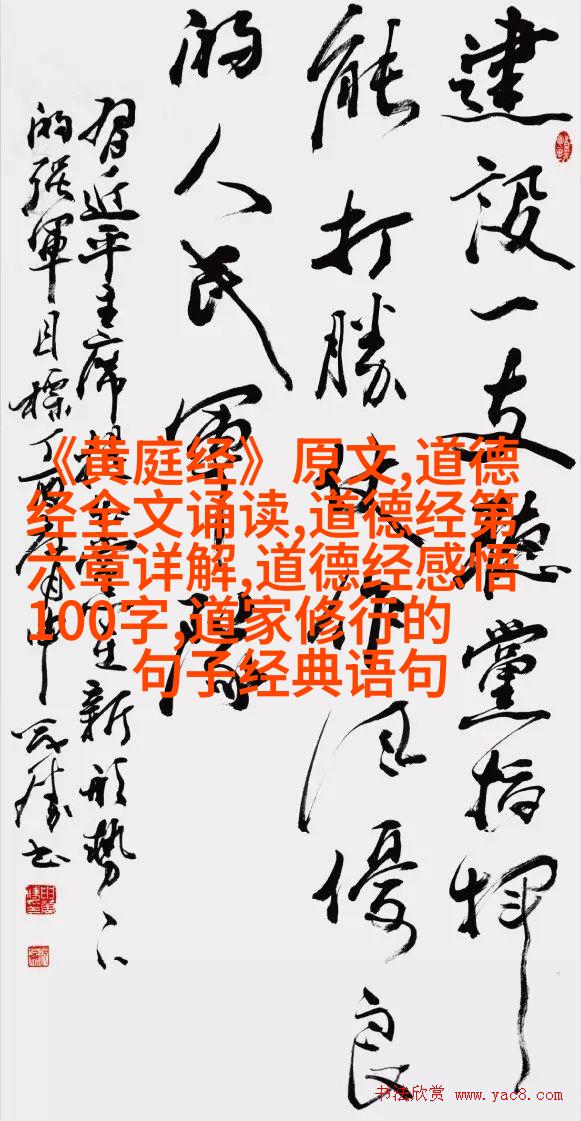 建設一支聽黨指揮
能打勝仗作風優良
的人民軍隊
習近平主席 新形勢下
的強軍目標
《黄庭经》原文,道德
经全文诵读,道德经第
六章详解,道德经感悟
100字,道家修行的
句子经典语句
书法欣赏 www.yac8.com